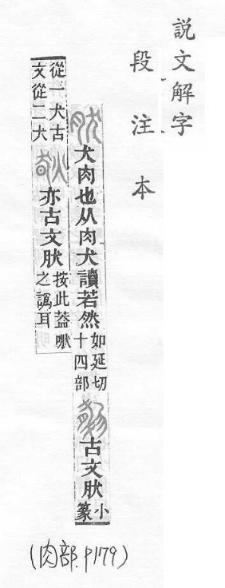 說文解字
段注本
犬肉也从肉犬讀若然如延切十四部古文肰小篆
從一犬古文從二犬亦古文肰按此蓋之譌耳
(肉部.P179)